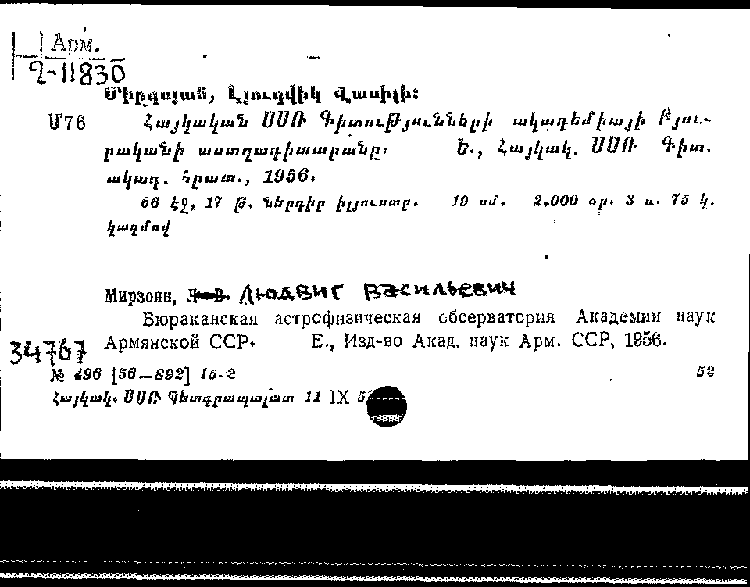 Арм.
2-11830
Միրզոյան, Լյուդվիկ Վասիլի:
Մ76 Հայկական ՍՍՌ Գիտությունների ակադեմիայի Բյու-
րականի աստղադիտարանը: Ե., Հայկակ. ՍՍՌ Գիտ.
ակադ. հրատ., 1956.
66 էջ, 17 թ. ներդիր իլյուստր. 10 սմ. 2.000 օր. 3 ռ. 75 կ.
կազմով
Мирзоян, Людвиг Васильевич
Бюраканская астрофизическая обсерватория Академии наук
34767 Армянской ССР. Е., Изд-во Акад. наук Арм. ССР, 1956.
№ 496 [56—892] 15-2 52
Հայկակ. ՍՍՌ Պետգրապալատ 11 IX